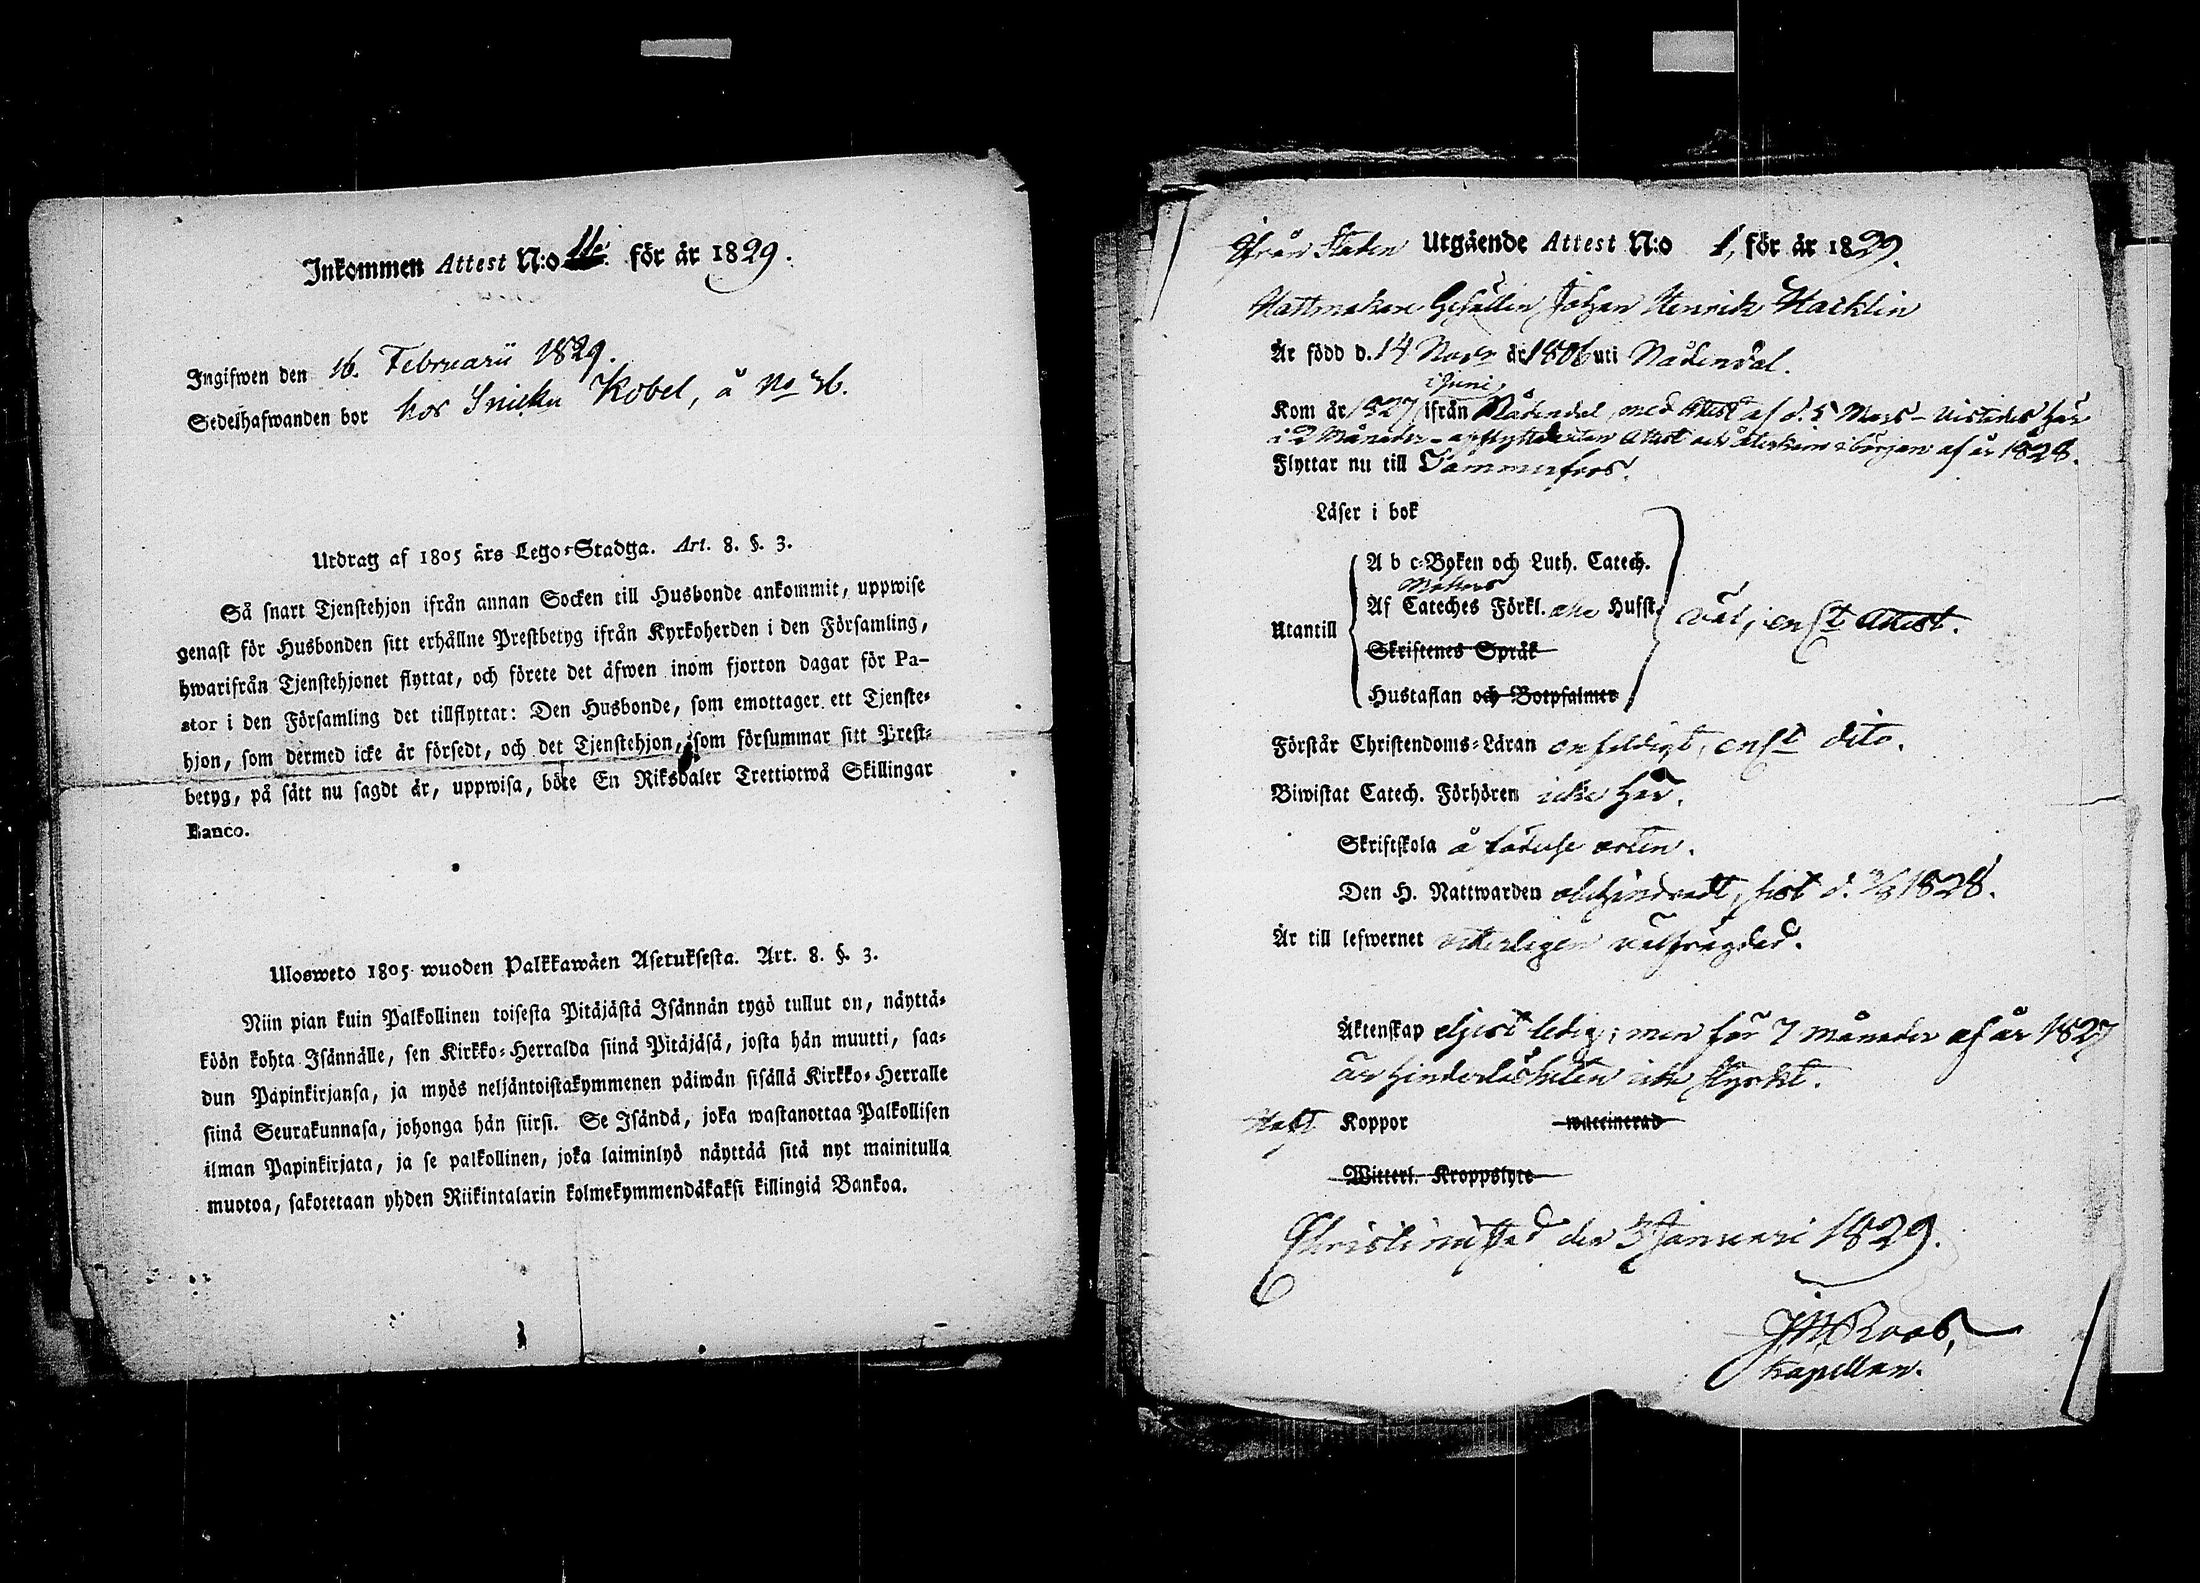 Inkommen Attest N:o 11. för år 1829.
Ingifwen den 16. Februarii 1829.
Sedelhafwanden bor hos Snick. Kobel, å No 36.
Utdrag af 1805 års Lego-Stadga. Art. 8. §. 3.
Så snart Tjenstehjon ifrån annan Socken till Husbonde ankommit, uppwise
genast för Husbonden sitt erhållne Prestbetyg ifrån Kyrkoherden i den Församling,
hwarifrån Tjenstehjonet flyttat, och förete det äfwen inom fjorton dagar för Pa-
stor i den Församling det tillflyttat: Den Husbonde, som emottager ett Tjenste-
hjon, som dermed icke är försedt, och det Tjenstehjon, som försummar sitt Prest-
betyg, på sätt nu sagdt är, uppwisa, böte En Riksdaler Trettiotwå Skillingar
Banco.
Ulosweto 1805 wuoden Palkkawäen Asetuksesta. Art. 8. §. 3.
Niin pian kuin Palkollinen toisesta Pitäjästä Isännän tygö tullut on, näyttä-
köön kohta Isännälle, sen Kirkko-Herralda siinä Pitäjäsä, josta hän muutti, saa-
dun Papinkirjansa, ja myös neljäntoistakymmenen päiwän sisällä Kirkko-Herralle
siinä Seurakunnasa, johonga hän siirsi. Se Isändä, joka wastanottaa Palkollisen
ilman Papinkirjata, ja se palkollinen, joka laiminlyö näyttää sitä nyt mainitulla
muotoa, sakotetaan yhden Riikintalarin kolmekymmendäkaksi killingiä Bankoa.
Ifrån Staden Utgående Attest N:o 1, för år 1829.
Hattmakare Gesällen Johan Henrik Hacklin
Är född d. 14 Novr år 1806 uti Nådendal.
i Juni
Kom år 1827 ifrån Nådendal, med Attest af d. 5 Mars - vistades här
i 2 Månader - afflyttade utan Attest och återkom i början af år 1828.
Flyttar nu till Tammerfors.
Läser i bok
A b c-Boken och Luth. Catech.
Utantill
Af Cateches Förkl. Hufst.
väl, enl Attest.
Skriftenes Språk
Hustaflan och Botpsalmer
Förstår Christendoms-Läran enfeldigt, enl dito.
Biwistat Catech. Förhören icke här.
Skriftskola å födelse orten.
Den H. Nattwarden obehindradt, sist d. 1828.
Är till lefwernet witterligen välfrägdad.
Äktenskap ledig; men för 7 månader af år 1827
är hinderslösheten icke styrkt.
Haft Koppor waccinerad
Witterl. Kroppslyte
Christinæstad den 3 Januari 1829.
J.M. Roos,
Kapellan.